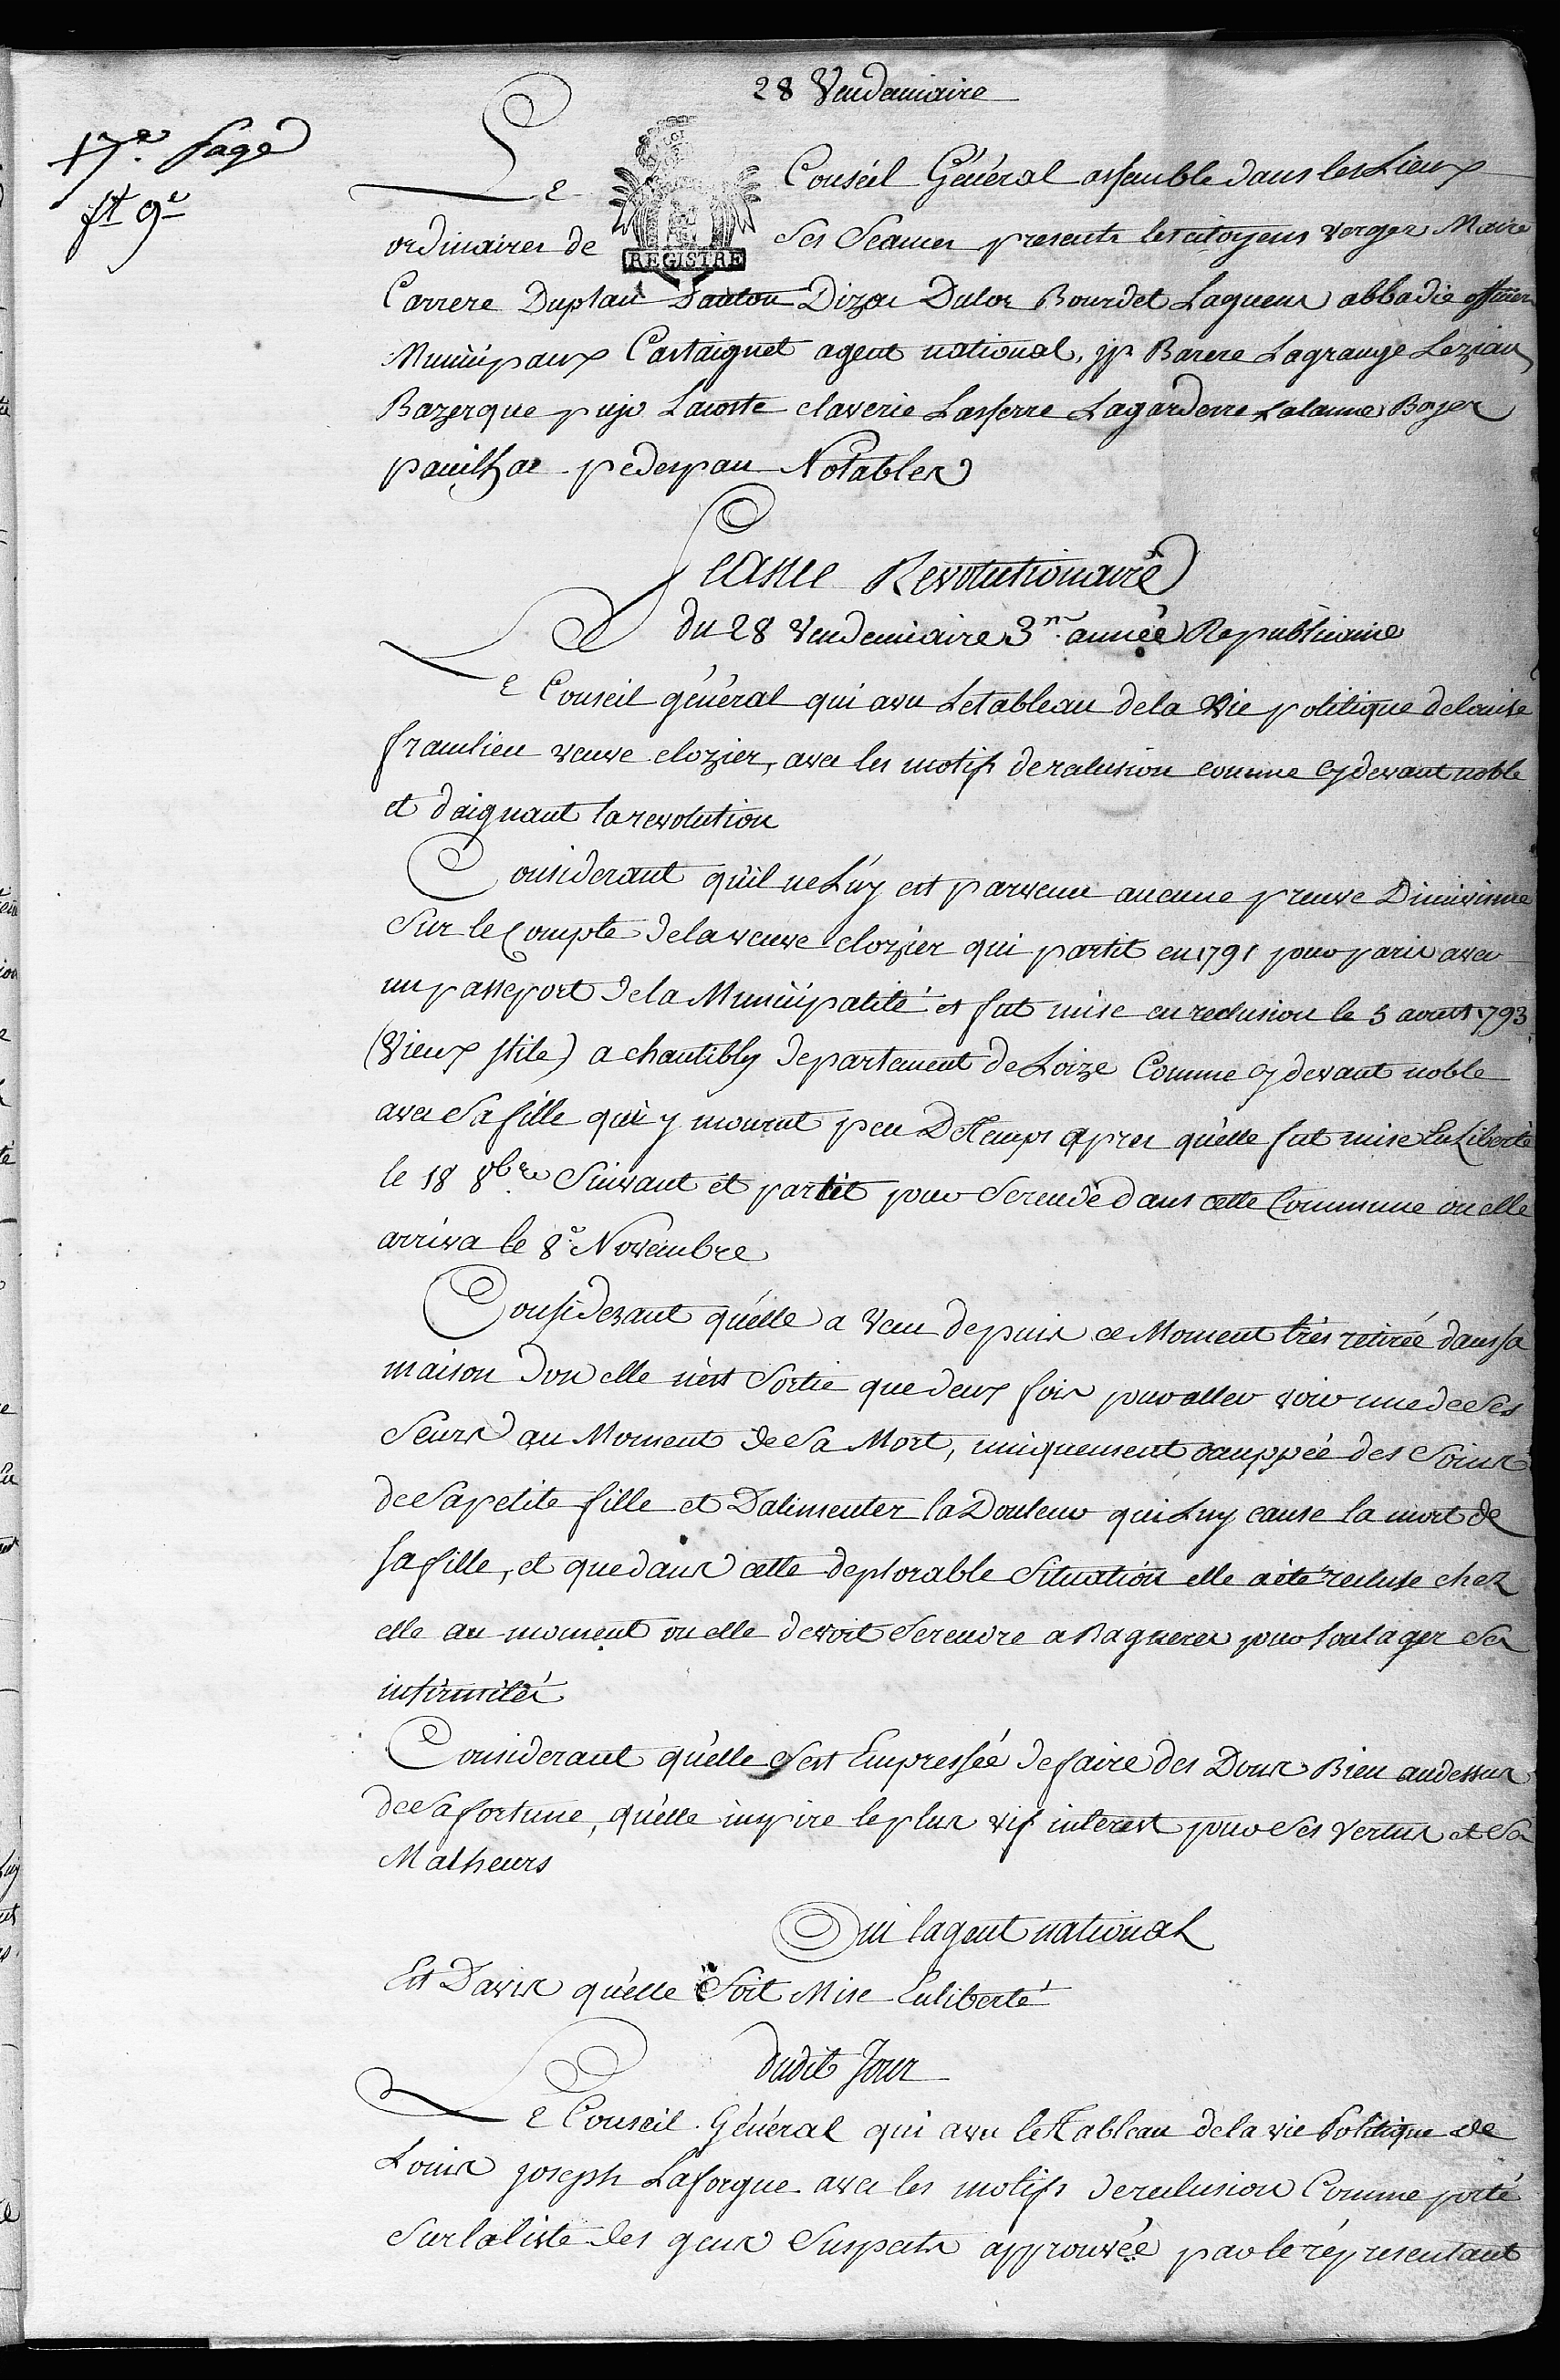 28 Vendemiaire
17e. page
ft 9e
Le Conséil Général assemble dans les Lieux
ordinaires de Ses Seances presents les citoyens verges Maire
REGISTRE
Carrere Duplan Dauton Dizac Dulor Bourdet Lagueux abbadie officiers
Municipaux Castaignet agent national, jp Barere Lagrange Lezian
Bazerque pujo Lacoste claverie Lasserre Lagarderre Lalanne Boyer
pauilhac pedespau Notables
Seance Revolutionaire
du 28 Vendemiaire 3me année Republicaine
Le Conseil général qui avu Letableau dela Vie politique delouise
franclieu veuve clozier, avec les motifs dereclusion comme cydevant noble
et daignant larevolution
Considerant quil ne Luy est parvenu aucune preuve Dincivisme
Sur le Compte delaveuve clozier qui partit en 1791 pour paris avec
un passeport dela Municipalité et fut mise en reclusion le 5 aoust 1793
(Vieux stile) a chantibly departement deLoize Comme cydevant noble
avec Safille qui y mourut peu DeTemps apres quelle fut mise En Liberté
le 18 8bre Suivant et partit pour Serendre dans cette Commune ou elle
arriva le 8e Novembre
Considerant quelle a Vecu depuis ce Moment très retirée dans sa
maison dou elle nest Sortie que deux fois pour aller voir une de Ses
Seurs au Moment de Sa Mort, uniquement occuppée des Soins
de Sa petite fille et Dalimenter la Douleur qui Luy cause la mort de
sa fille, et que dans cette deplorable Situation elle a été recluse chez
elle au moment ou elle devoit Serendre a Bagneres pour soulager Ses
infirmités
Considerant quelle Sest Empressée defaire des Dons Bien audessus
de Safortune, quelle inspire le plus vif interest pour Ses vertus et Ses
Malheurs
Oui lagent national
Est Davis quelle Soit Mise Enliberté
dudit Jour
Le Conseil Général qui avu le Tableau dela vie Politique de
Louis joseph Laforgue avec les motifs dereclusion Comme porté
Surlaliste des gens Suspects approuvée par le réprésentant